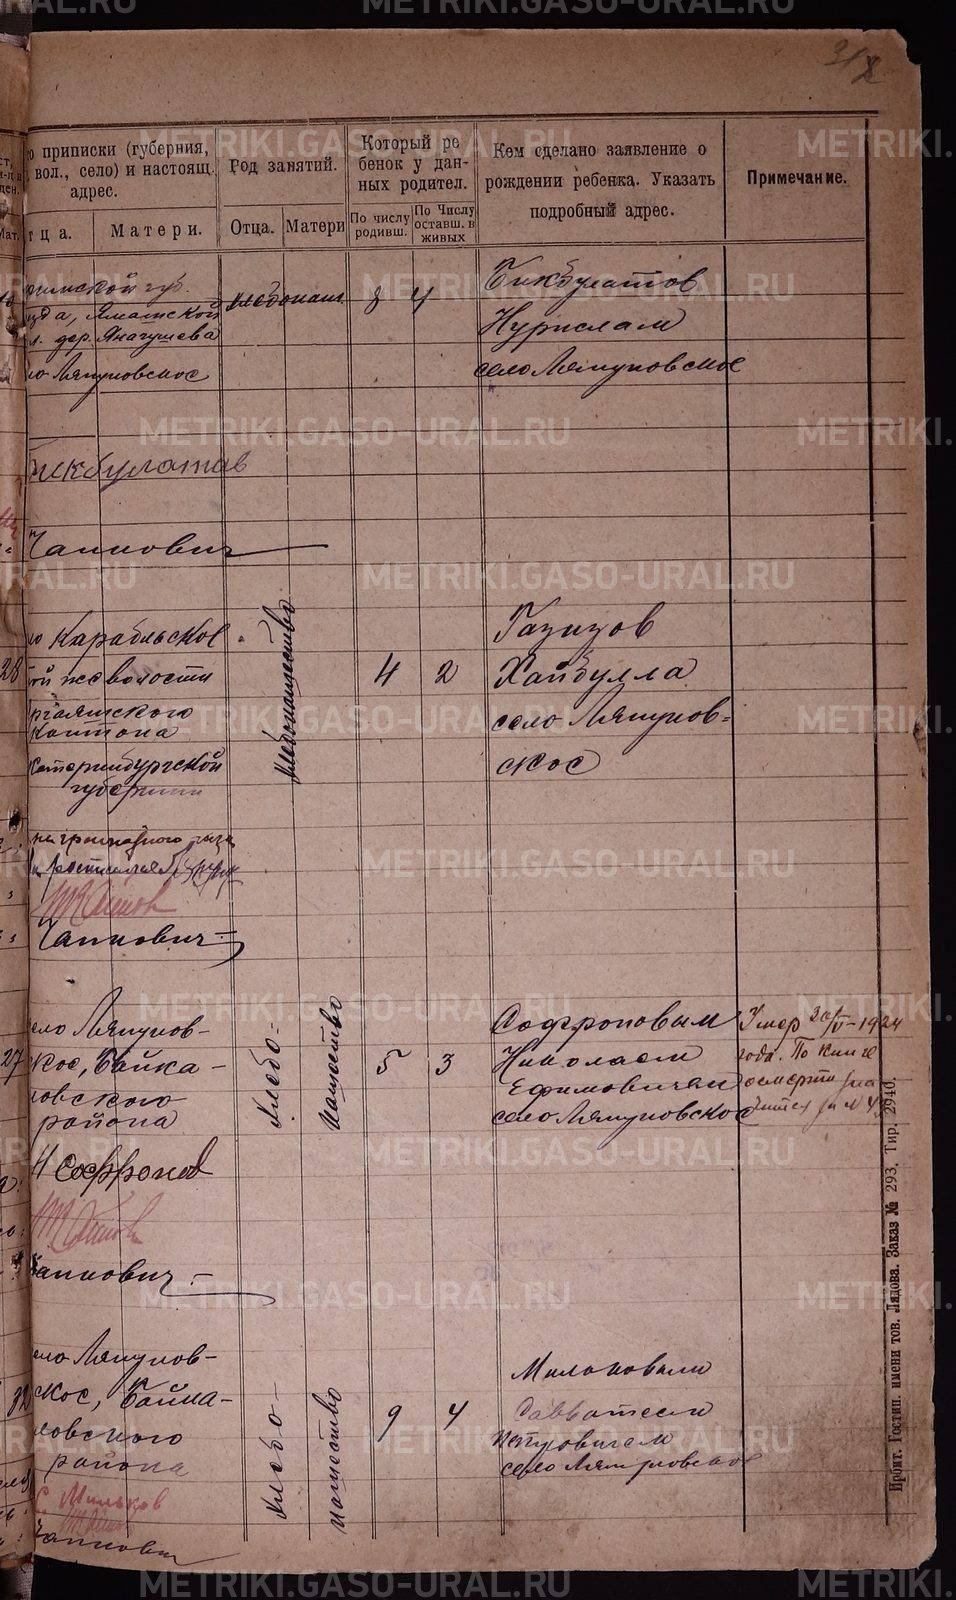 о приписки (губерния,
вол., село) и настоящ.
адрес.
Род занятий.
Который ре
бенок у дан-
ных родител.
Кем сделано заявление о
рождении ребенка. Указать
подробный адрес.
Примечание.
тца.
Матери.
Отца.
Матери
По числу
родивш.
По Числу
оставш. в
живых
имской губ.
зда, Яматской
л. дер. Яначушева
ло Ляпуновское
хлебопаш.
8
4
Бикбулатов
Нурислам
село Ляпуновское
Бикбулатов
Чаппович
ло Карабльское
той же волости
Кантона
катеринбургской
губернии
Хлебопашество
4
2
Газизов
Хайбулла
село Ляпунов-
ское
Чаппович
28
ело Ляпунов-
ское, Байка-
ловского
района
27
Хлебо-
пашество
5
3
Софроновым
Николаем
Ефимовичем
село Ляпуновское
Умер 20/VI-1924
года. По книге
о смерти зна
чится за № 4
Н Софронов
Чаппович
ело Ляпунов-
ское, Байка-
ловского
района
Хлебо-
пашество
9
4
Мильковым
Савватеем
Петровичем
село Ляпуновское
С. Мильков
Чаппович
Ирбит. Гостип. имени тов. Лядова. Заказ № 293. Тир. 2940.
METRIKI.GASO-URAL.RU